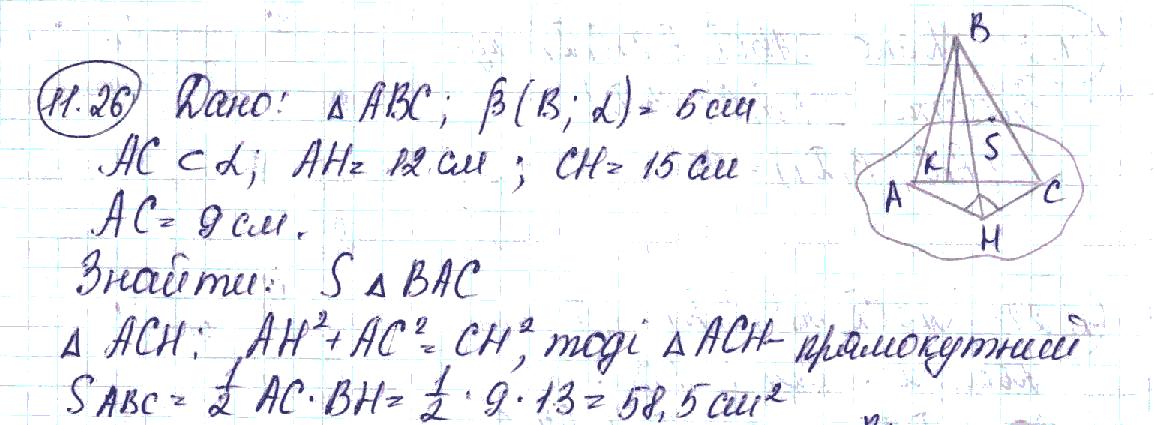 11.26 Дано: △ABC; β(B; α) = 5 см
AC ⊂ α; AH = 12 см; CH = 15 см
AC = 9 см.
Знайти: S △ BAC
△ ACH: AH² + AC² = CH², тоді △ ACH - прямокутний
S ABC = 1/2 AC · BH = 1/2 · 9 · 13 = 58,5 см²
B
K
S
A
C
H